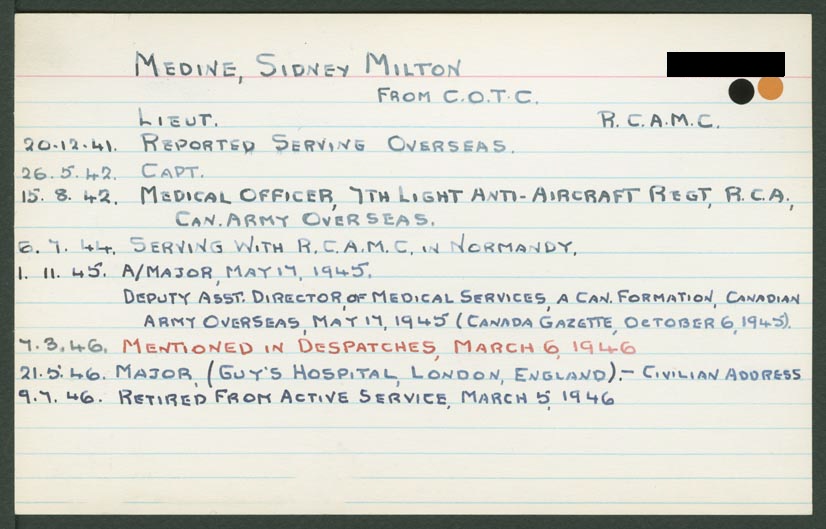 MEDINE, SIDNEY MILTON
FROM C.O.T.C.
LIEUT. R.C.A.M.C.
20.12.41. REPORTED SERVING OVERSEAS.
26.5.42. CAPT.
15.8.42. MEDICAL OFFICER, 7TH LIGHT ANTI-AIRCRAFT REGT, R.C.A.,
CAN. ARMY OVERSEAS.
6.7.44. SERVING WITH R.C.A.M.C. IN NORMANDY.
1.11.45. A/MAJOR, MAY 17, 1945.
DEPUTY ASST. DIRECTOR, OF MEDICAL SERVICES, A CAN. FORMATION, CANADIAN
ARMY OVERSEAS, MAY 17, 1945 (CANADA GAZETTE, OCTOBER 6, 1945).
7.3.46. MENTIONED IN DESPATCHES, MARCH 6, 1946
21.5.46. MAJOR, (GUY'S HOSPITAL, LONDON, ENGLAND).- CIVILIAN ADDRESS
9.7.46. RETIRED FROM ACTIVE SERVICE, MARCH 5, 1946